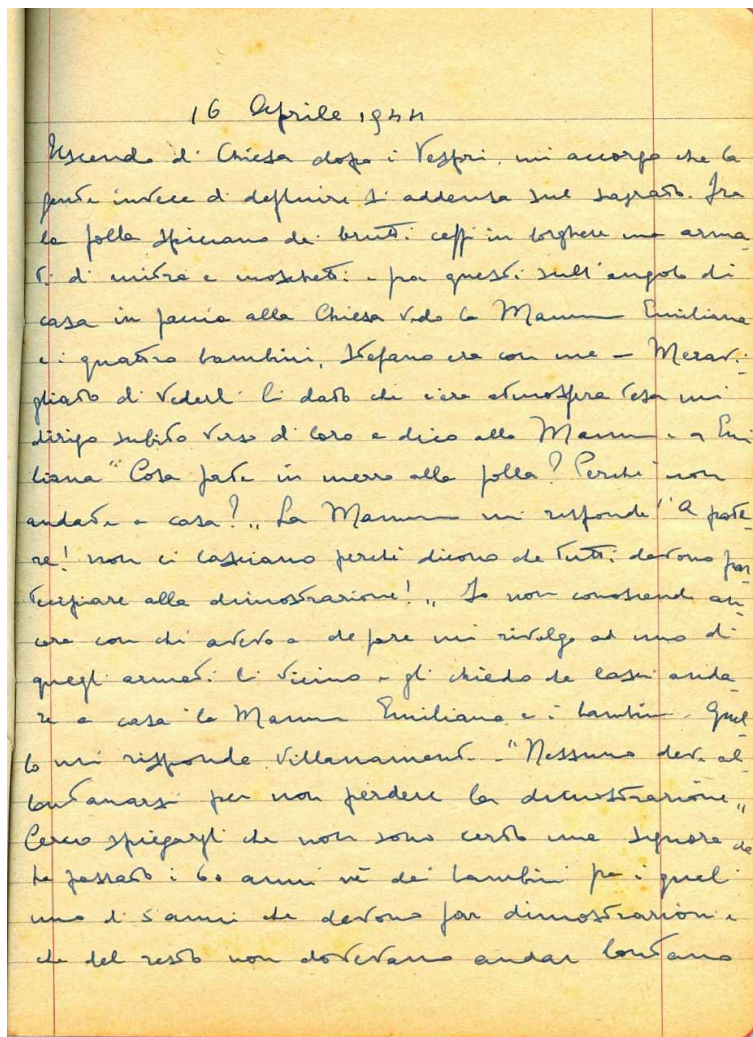 16 Aprile 1944
Uscendo di Chiesa dopo i Vespri, mi accorgo che la
gente invece di defluire s'addensa sul sagrato. Fra
la folla spiccano dei brutti ceffi in borghese ma arma-
ti di mitra e moschetti e fra questi sull'angolo di
casa in faccia alla Chiesa vedo la Mamma Emiliana
e i quattro bambini, Stefano era con me - Meravi-
gliato di vederli lì dato che c'era atmosfera tesa mi
dirigo subito verso di loro e dico alla Mamma e a Emi
liana "Cosa fate in mezzo alla folla? Perché non
andate a casa?" La Mamma mi risponde "A pote-
re! non ci lasciano perché dicono che tutti devono par
tecipare alla dimostrazione!" Io non conoscendo an-
cora con chi avevo a che fare mi rivolgo ad uno di
quegli armati lì vicino e gli chiedo che lasci anda-
re a casa la Mamma Emiliana e i bambini. Quel-
lo mi risponde villanamente - "Nessuno deve al-
lontanarsi per non perdere la dimostrazione"
Cerco spiegargli che non sono certo una signora che
ha passato i 60 anni nè dei bambini fra i quali
uno di 5 anni che devono far dimostrazioni e
che del resto non dovevano andar lontano